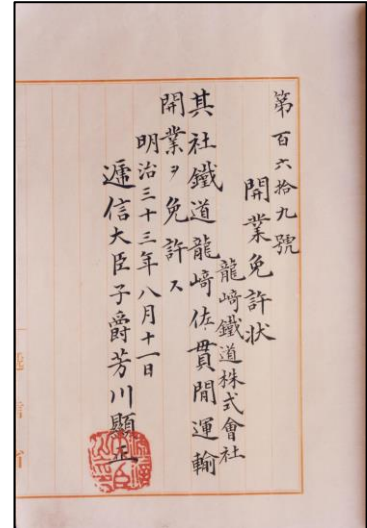 第百六拾九號
開業免許状
龍﨑鐵道株式會社
其社鐵道龍﨑佐貫間運輸
開業ヲ免許ス
明治三十三年八月十一日
遞信大臣子爵芳川顯正